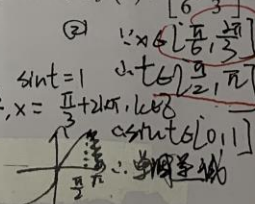 [π/6, 2π/3]
② ∵x∈[π/6, 2π/3]
sint=1 ∴t∈[π/2, π]
∴x=π/3+2kπ, k∈Z
∴sint∈[0,1]
π/2 π ∴单调